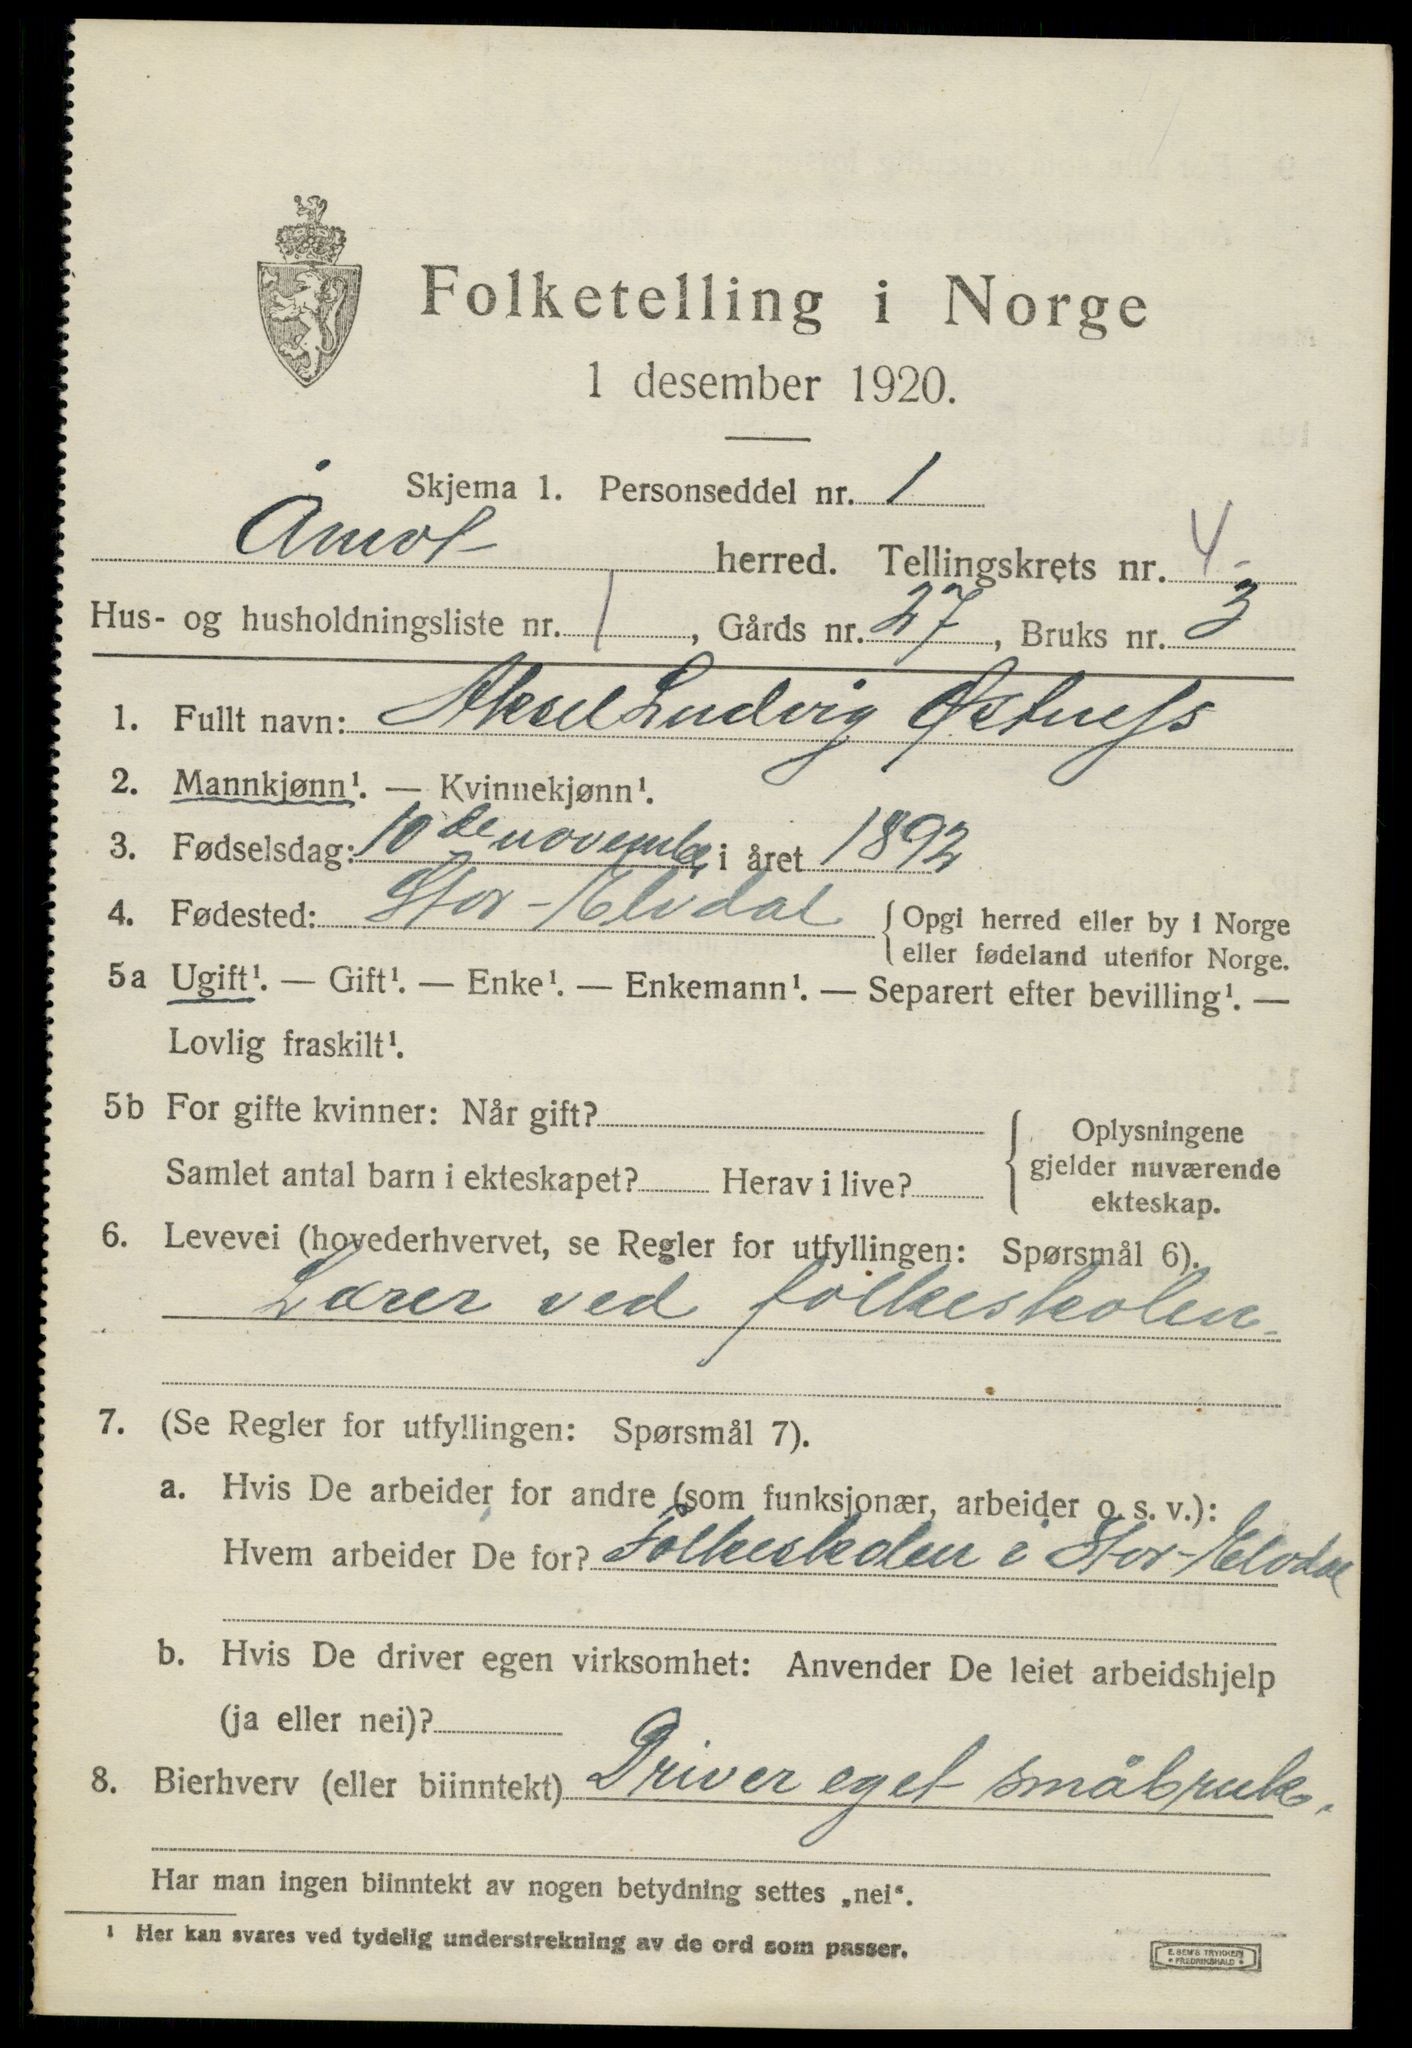 Folketelling i Norge
1 desember 1920.
Skjema 1. Personseddel nr. 1
Åmot herred. Tellingskrets nr. 4.
Hus- og husholdningsliste nr. 1, Gårds nr. 27, Bruks nr. 3
1. Fullt navn: Aksel Ludvig
2. Mannkjønn¹. — Kvinnekjønn¹.
3. Fødselsdag: 10de novembr i året 1892
4. Fødested: Stor-Elvdal { Opgi herred eller by i Norge
eller fødeland utenfor Norge.
5a Ugift¹. — Gift¹. — Enke¹. — Enkemann¹. — Separert efter bevilling¹. —
Lovlig fraskilt¹.
5b For gifte kvinner: Når gift?
Samlet antal barn i ekteskapet? Herav i live?
{ Oplysningene
gjelder nuværende
ekteskap.
6. Levevei (hovederhvervet, se Regler for utfyllingen: Spørsmål 6).
Lærer ved folkeskolen.
7. (Se Regler for utfyllingen: Spørsmål 7).
a. Hvis De arbeider for andre (som funksjonær, arbeider o. s. v.):
Hvem arbeider De for? Folkeskolen i Stor-Elvdal
b. Hvis De driver egen virksomhet: Anvender De leiet arbeidshjelp
(ja eller nei)?
8. Bierhverv (eller biinntekt) Driver eget småbruk.
Har man ingen biinntekt av nogen betydning settes „nei“.
¹ Her kan svares ved tydelig understrekning av de ord som passer.
E. SEM'S TRYKKERI
* FREDRIKSHALD *